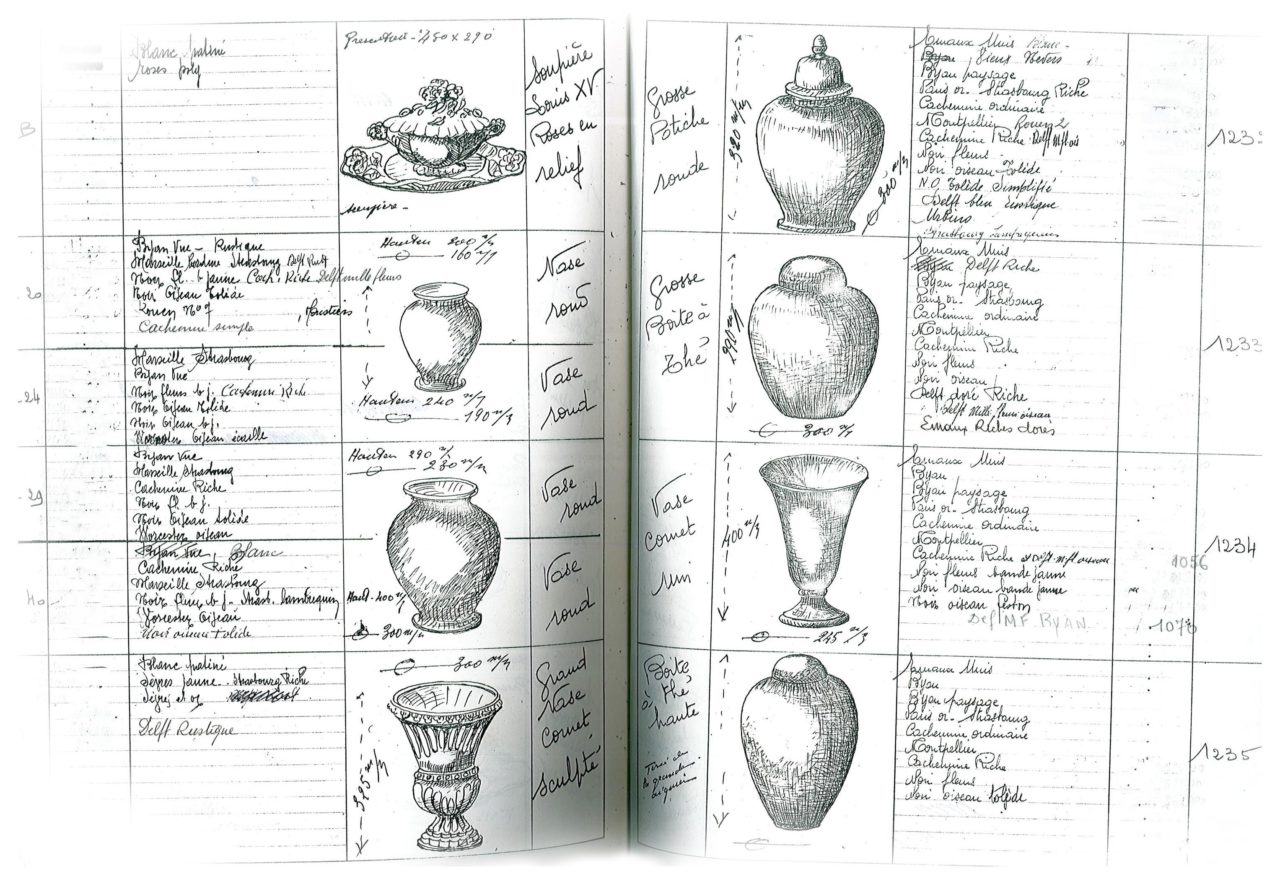 Blanc patiné
roses poly
Présentoir - 450 x 290
soupière
Louis XV.
Roses en
relief
soupière -
B
20
Bryan Vue - Rustique
Marseille Strasbourg
Noir fl. b. jaune Cach. Riche Delft mille fleurs
Noir Oiseau Tolède
Rouen N° 7
Moustiers
Cachemire simple
Hauteur 200 m/m
160 m/m
Vase
rond
24
Marseille Strasbourg
Bryan Vue
Noir fleurs b j. Cachemire Riche
Noir Oiseau Tolède
Noir Oiseau b j.
Oiseau écaille
Hauteur 240
190 m/m
Vase
rond
29
Bryan Vue
Marseille Strasbourg
Cachemire Riche
Noir fl. b j.
Noir Oiseau Tolède
Worcester oiseau
Hauteur 290 m/m
230 m/m
Vase
rond
40
Bryan Vue, Blanc
Cachemire Riche
Marseille Strasbourg
Noir fleurs b j. Strasb. Lambrequin
Worcester Oiseau
Noir oiseau tolède
Haut. 400
300 m/m
Vase
rond
Blanc patiné
Sèvres jaune - Strasbourg Riche
Sèvres et or
Delft Rustique
300 m/m
385 m/m
Grand
Vase
Cornet
sculpté
Grosse
Potiche
ronde
320 m/m
300 m/m
Bryan paysage
Paris or - Strasbourg Riche
Cachemire ordinaire
Montpellier Rouen 2
Cachemire Riche
Noir fleurs
Noir oiseau Tolède
N.O. Tolède Simplifié
Delft bleu
123
Grosse
Boîte à
Thé
290 m/m
300 m/m
Delft Riche
Bryan paysage
Paris or - Strasbourg
Cachemire ordinaire
Montpellier
Cachemire Riche
Noir fleurs
Noir oiseau
Delft doré Riche
Delft Mille fleurs oiseau
Emaux Riches dorés
1233
Vase
Cornet
Uni
400 m/m
245 m/m
Bryan
Bryan paysage
Paris or - Strasbourg
Cachemire ordinaire
Montpellier
Cachemire Riche
Noir fleurs bande jaune
Noir oiseau bande jaune
Noir oiseau
Delf MF BYAN
1056
1070
1234
Boîte
à thé
haute
Bryan
Bryan paysage
Paris or - Strasbourg
Cachemire ordinaire
Montpellier
Cachemire Riche
Noir fleurs
Noir oiseau tolède
1235